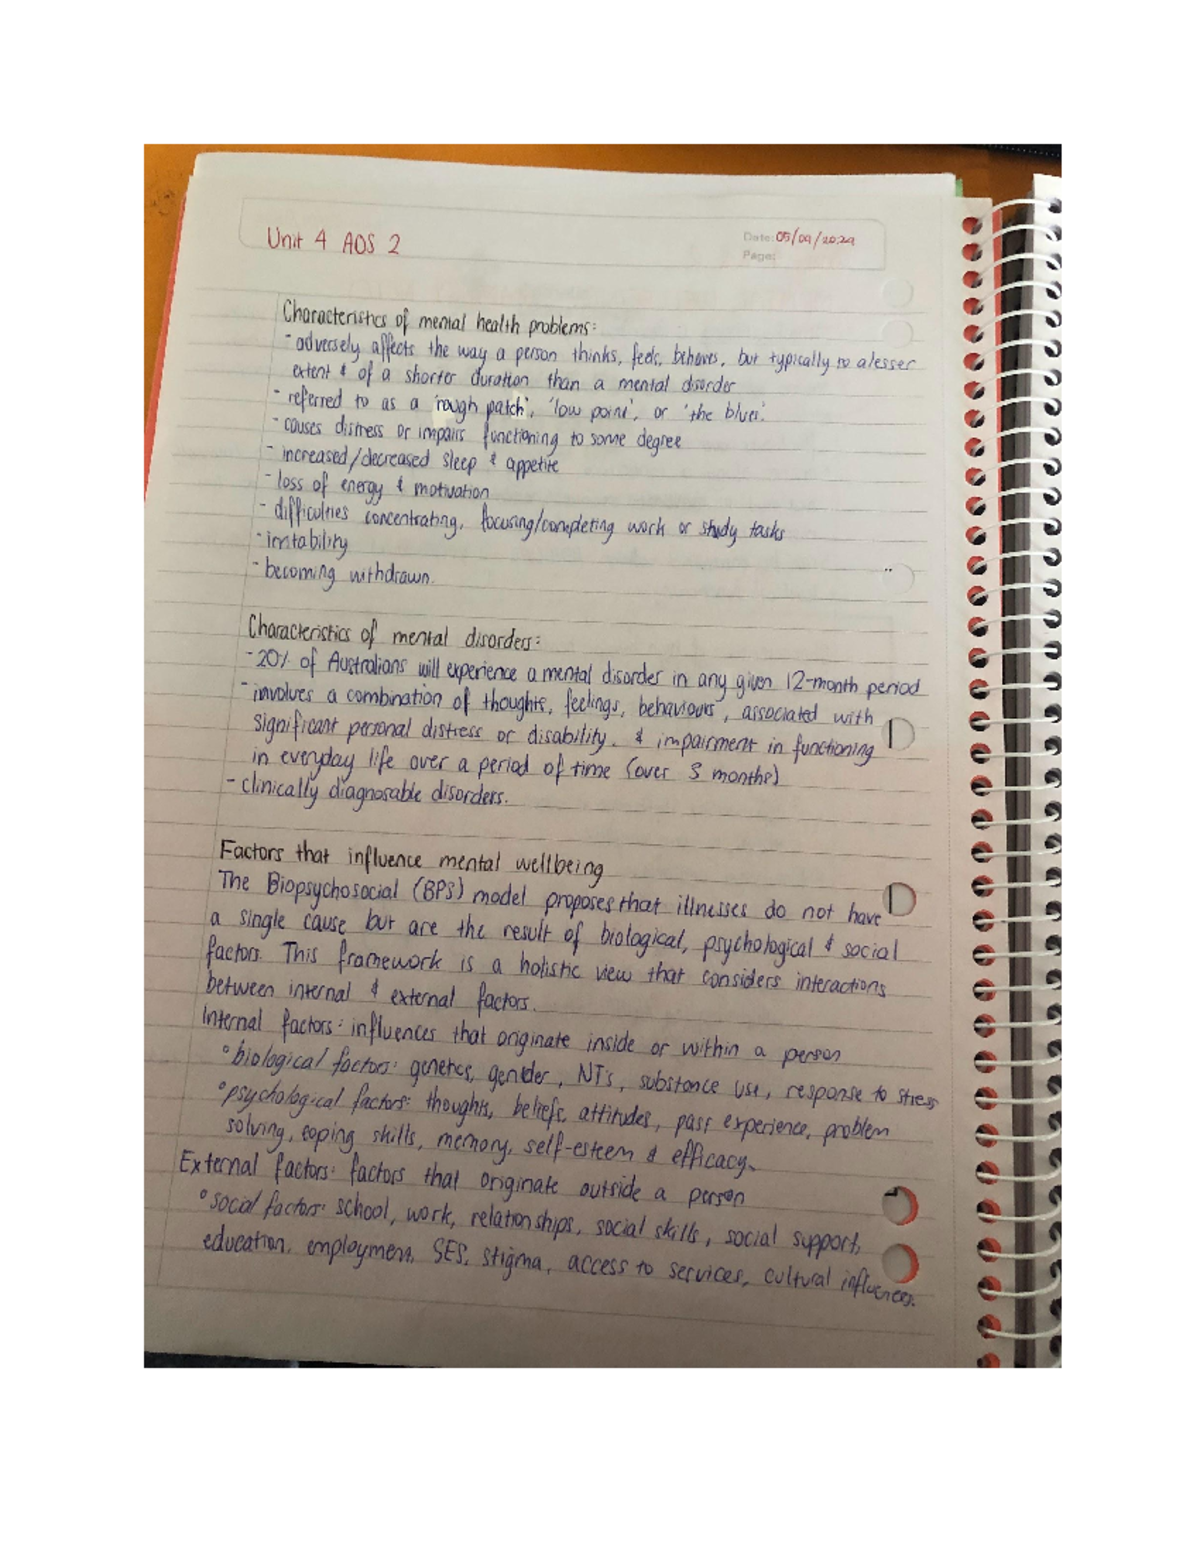 Unit 4 AOS 2
Date: 05/09/2024
Page:
Characteristics of mental health problems:
- adversely affects the way a person thinks, feels, behaves, but typically to a lesser
extent & of a shorter duration than a mental disorder
- referred to as a 'rough patch', 'low point', or 'the blues'.
- causes distress or impairs functioning to some degree
- increased/decreased sleep & appetite
- loss of energy & motivation
- difficulties concentrating, focusing/completing work or study tasks
- irritability
- becoming withdrawn.
Characteristics of mental disorders:
- 20% of Australians will experience a mental disorder in any given 12-month period
- involves a combination of thoughts, feelings, behaviours, associated with
significant personal distress or disability. & impairment in functioning
in everyday life over a period of time (over 3 months)
- clinically diagnosable disorders.
Factors that influence mental wellbeing
The Biopsychosocial (BPS) model proposes that illnesses do not have
a single cause but are the result of biological, psychological & social
factors. This framework is a holistic view that considers interactions
between internal & external factors.
Internal factors: influences that originate inside or within a person
° biological factors: genetics, gender, NTs, substance use, response to stress
° psychological factors: thoughts, beliefs, attitudes, past experience, problem
solving, coping skills, memory, self-esteem & efficacy.
External factors: factors that originate outside a person
° social factors: school, work, relationships, social skills, social support,
education, employment, SES, stigma, access to services, cultural influences.